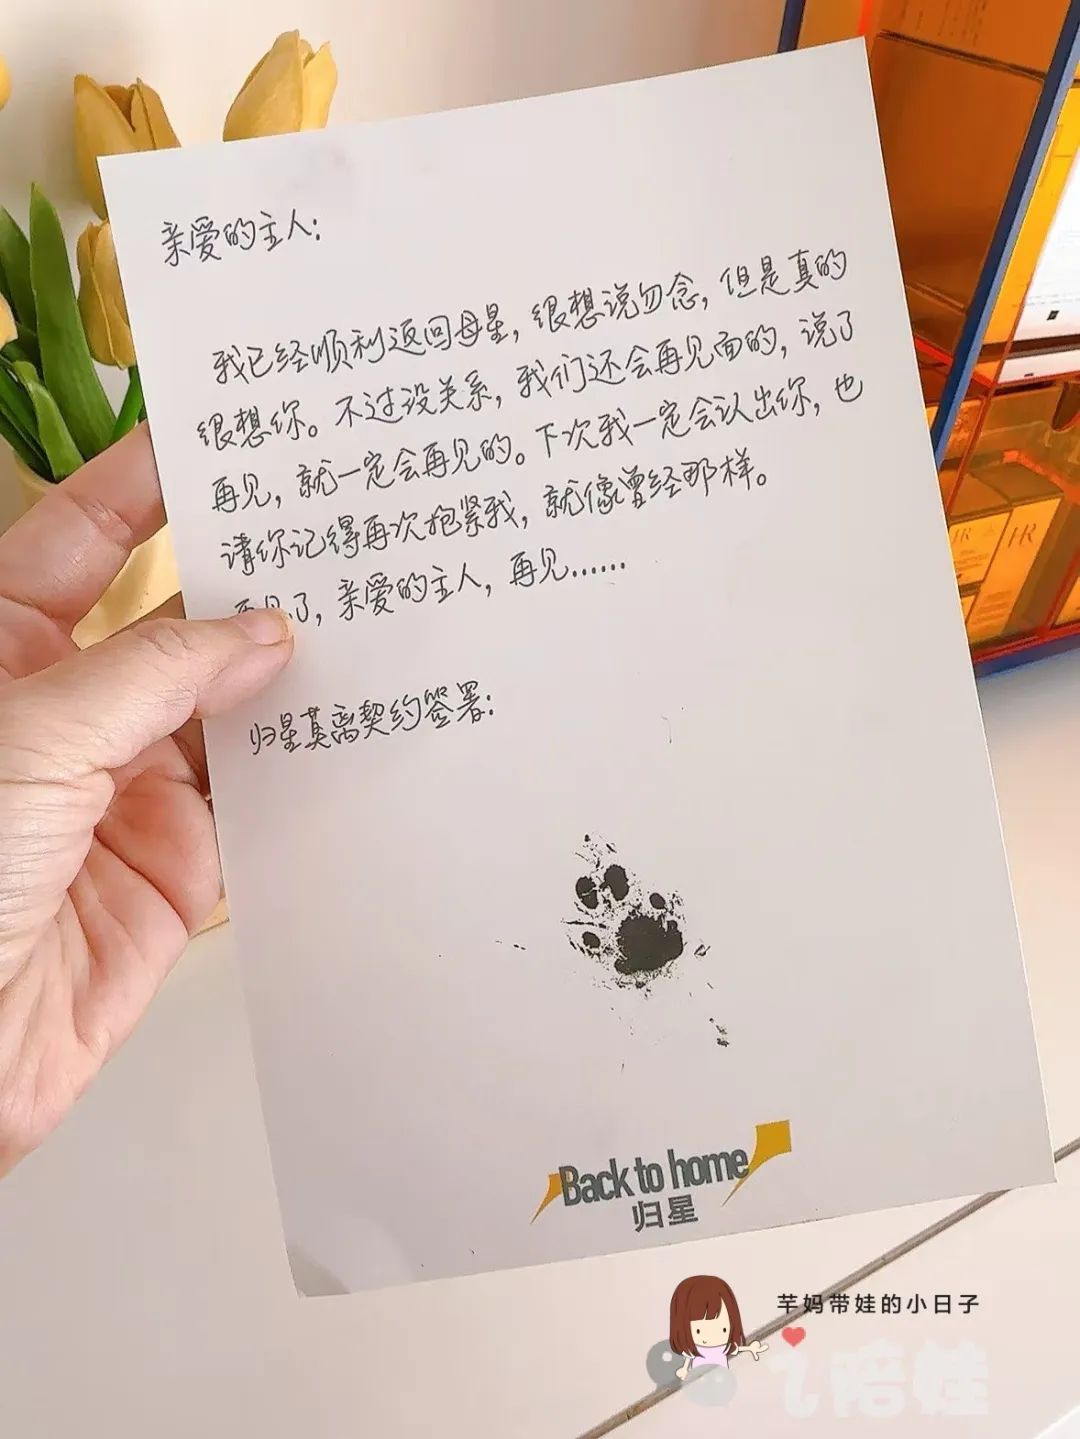 亲爱的主人：
我已经顺利返回母星，很想说勿念，但是真的
很想你。不过没关系，我们还会再见面的，说了
再见，就一定会再见的。下次我一定会认出你，也
请你记得再次抱紧我，就像曾经那样。
了，亲爱的主人，再见……
归星莫离契约签署：
Back to home
归星
芊妈带娃的小日子
陪娃
HR
HR